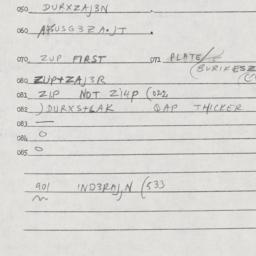 050 DURXZAJ3N
060 A%USG3ZA·JT
070 ZUP FIRST 071 PLATE/
(BURIKESZ
080 ZUP+ZAJ3R
081 ZIP NOT Z14P (022
082 ) DURXS+LAK QAP THICKER
083 —
084 O
085 O
901 IND3RAJ,N (533